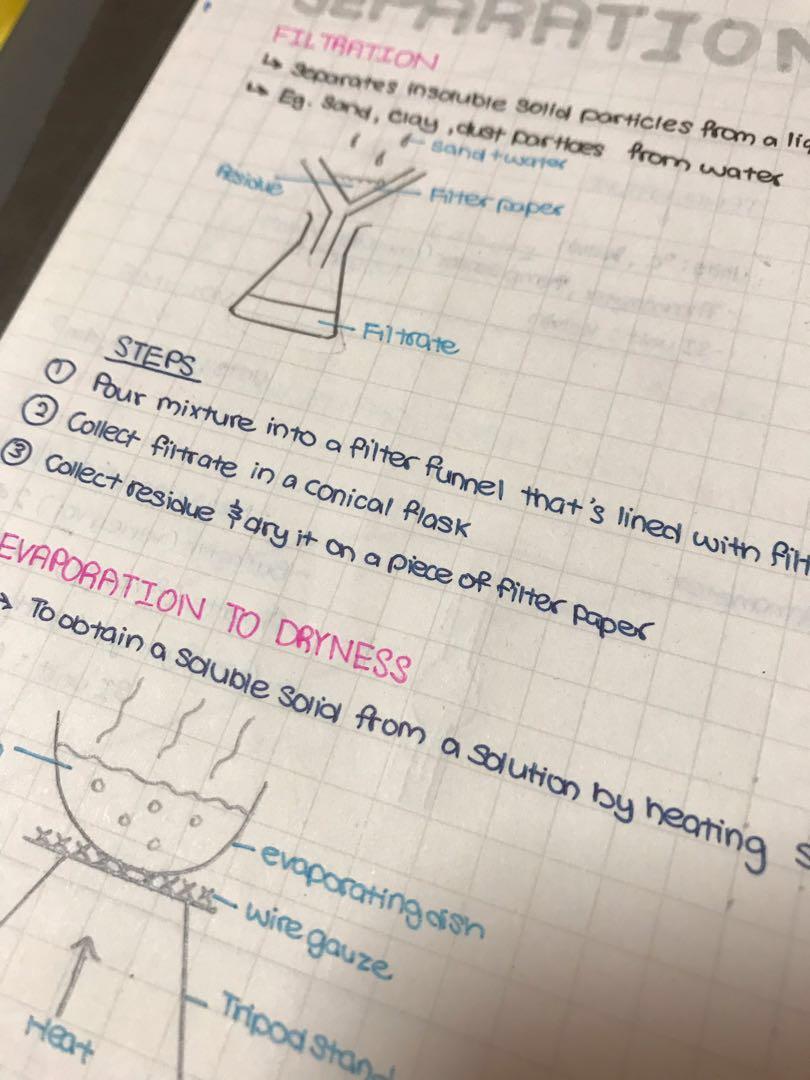 SEPARATION
FILTRATION
↳ Separates insoluble solid particles from a liq
↳ Eg. Sand, clay, dust partices from water
sand + water
Residue
Filter paper
Filtrate
STEPS
① Pour mixture into a filter funnel that's lined with filt
② Collect filtrate in a conical flask
③ Collect residue & dry it on a piece of filter paper
EVAPORATION TO DRYNESS
→ To obtain a soluble solid from a solution by heating s
evaporating dish
wire gauze
Tripod stand
Heat